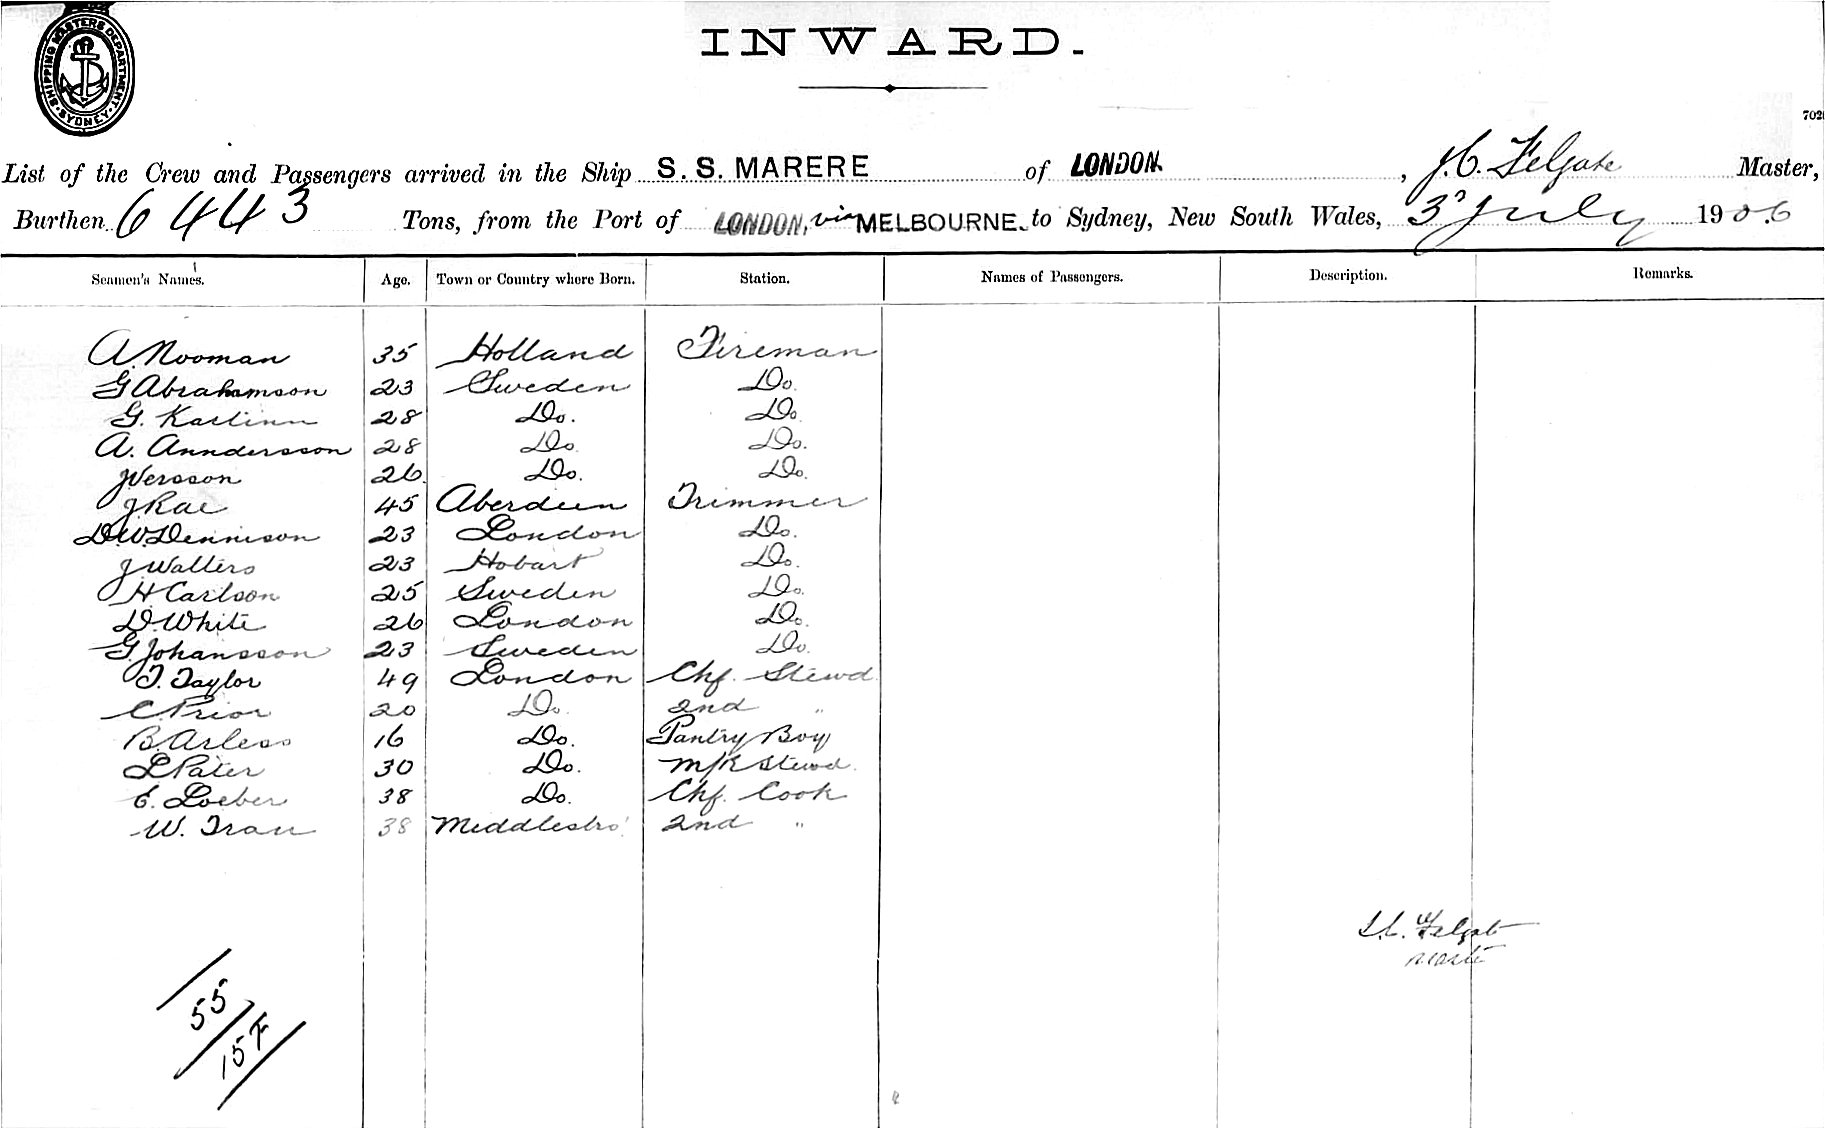 SHIPPING MASTERS DEPARTMENT
SYDNEY
INWARD.
702
List of the Crew and Passengers arrived in the Ship S. S. MARERE of LONDON, J.C. Felgate Master,
Burthen 6443 Tons, from the Port of LONDON, via MELBOURNE. to Sydney, New South Wales, 3rd July 1906
Seamen's Names. Age. Town or Country where Born. Station. Names of Passengers. Description. Remarks.
A. Nooman 35 Holland Fireman
G Abrahamson 23 Sweden Do.
G. Karlinn 28 Do. Do.
A. Anndersson 28 Do. Do.
26 Do. Do.
J Rae 45 Aberdeen Trimmer
D.W. Dennison 23 London Do.
J Walters 23 Hobart Do.
H Carlson 25 Sweden Do.
D. White 26 London Do.
G. Johansson 23 Sweden Do.
T. Taylor 49 London Chf. Stewd
C. Prior 20 Do. 2nd "
B. Arless 16 Do. Pantry Boy
L Pater 30 Do. M/R Stewd.
E. Loeber 38 Do. Chf. Cook
W. Tran 38 Middlesbro' 2nd "
J.C. Felgate
Master
55
15 F